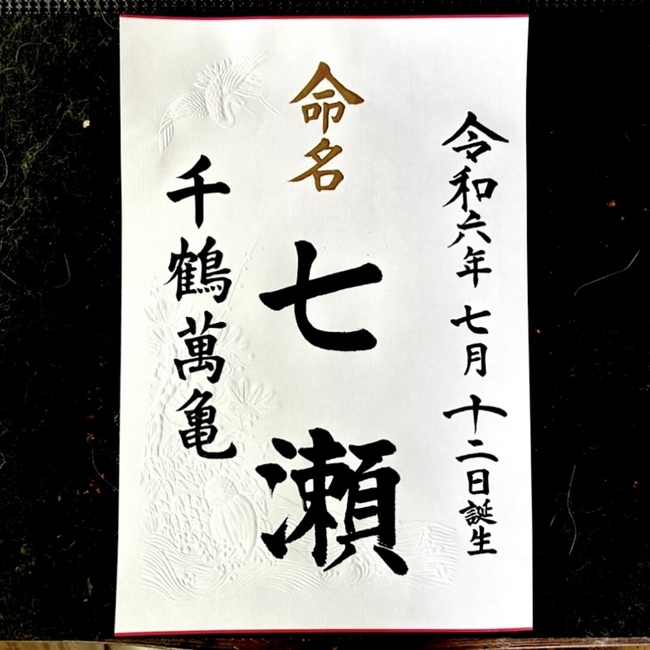 令和六年七月十二日誕生
命名
七瀬
千鶴萬亀